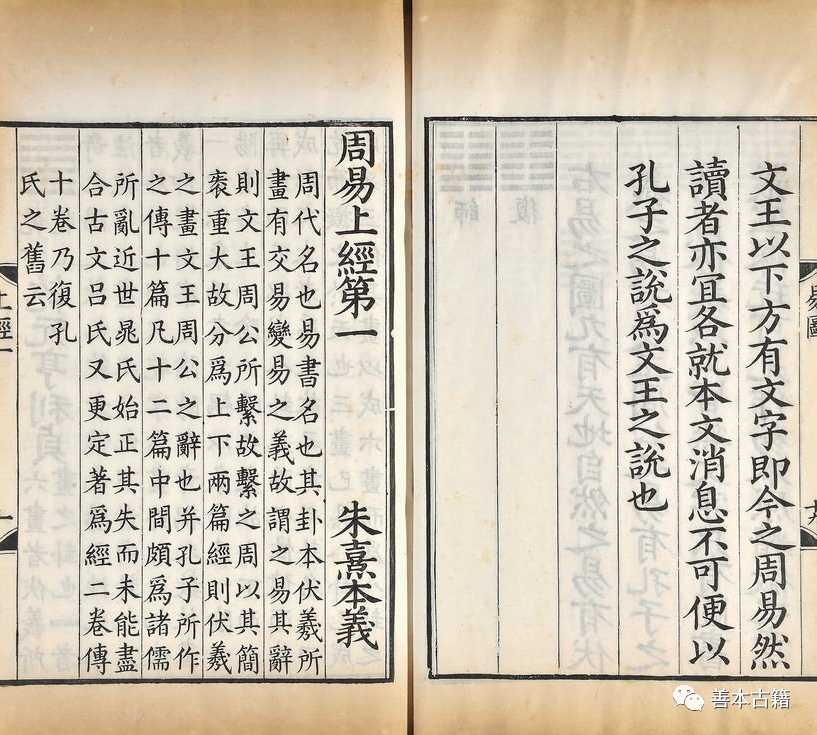 文王以下方有文字即今之周易然
讀者亦宜各就本文消息不可便以
孔子之說爲文王之說也
周易上經第一 朱熹本義
周代名也易書名也其卦本伏羲所
畫有交易變易之義故謂之易其辭
則文王周公所繫故繫之周以其簡
袠重大故分爲上下兩篇經則伏羲
之畫文王周公之辭也并孔子所作
之傳十篇凡十二篇中間頗爲諸儒
所亂近世晁氏始正其失而未能盡
合古文呂氏又更定著爲經二卷傳
十卷乃復孔
氏之舊云
善本古籍